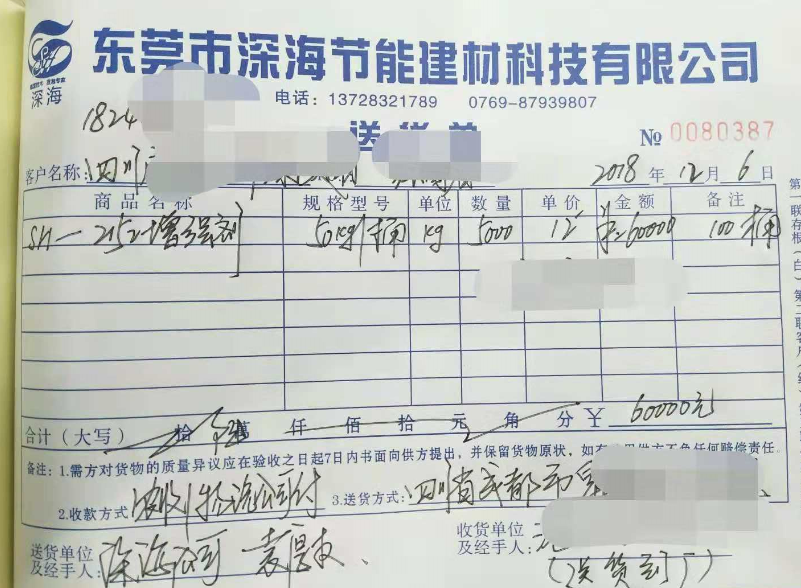 深海
东莞市深海节能建材科技有限公司
电话：13728321789 0769-87939807
1824
送货单 № 0080387
客户名称：四川 2018 年 12 月 6 日
商品名称 规格型号 单位 数量 单价 金额 备注
SH-2152增强剂 50kg/桶 kg 5000 12 60000 100桶
合计（大写） 拾 萬 仟 佰 拾 元 角 分 ￥ 60000元
备注：1.需方对货物的质量异议应在验收之日起7日内书面向供方提出，并保留货物原状，如有 供方不负任何赔偿责任。
2.收款方式 物流公司付 3.送货方式：四川省成都市
送货单位及经手人：深海公司 袁
收货单位及经手人：
（送货到厂）
第一联存根（白）第二联客户（